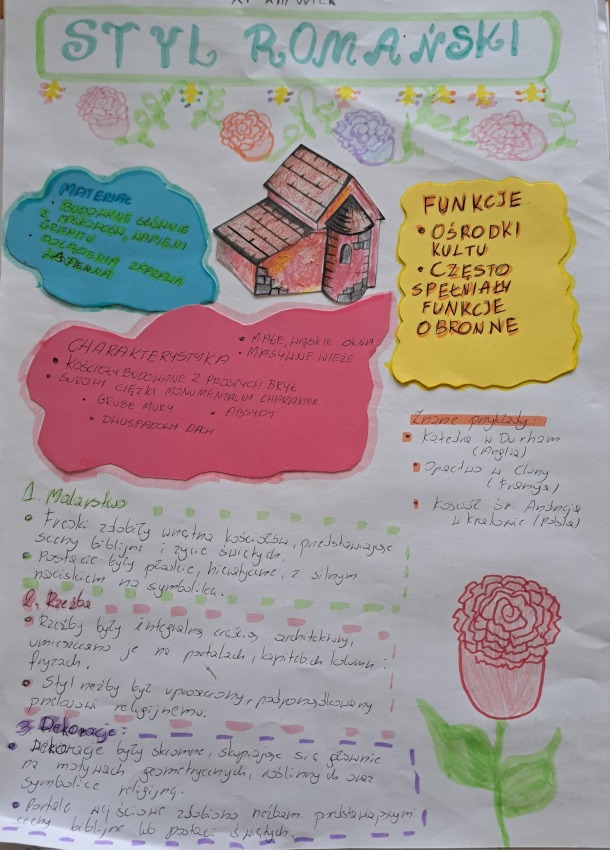 XI XIII WIEK
STYL ROMAŃSKI
MATERIAŁ
• BUDOWANE GŁÓWNIE
Z CIOSÓW, KAMIENI
GRANITU
• POŁĄCZENIA ZAPRAWĄ
WAPIENNĄ
FUNKCJE
• OŚRODKI
KULTU
• CZĘSTO
SPEŁNIAŁY
FUNKCJE
OBRONNE
CHARAKTERYSTYKA
• MAŁE, WĄSKIE OKNA
• MASYWNE WIEŻE
• KOŚCIOŁY BUDOWANE Z PROSTYCH BRYŁ
• SUROWY CIĘŻKI MONUMENTALNY CHARAKTER
• GRUBE MURY • ABSYDY
• DWUSPADOWY DACH
Znane przykłady:
• Katedra w Durham
(Anglia)
• Opactwo w Cluny
(Francja)
• Kościół św. Andrzeja
w Krakowie (Polska)
1. Malarstwo
• Freski zdobiły wnętrza kościołów, przedstawiając
sceny biblijne i życie świętych.
• Postacie były płaskie, hieratyczne, z silnym
naciskiem na symbolikę.
2. Rzeźba
• Rzeźby były integralną częścią architektury,
umieszczano je na portalach, kapitelach kolumn i
fryzach.
• Styl rzeźby był uproszczony, podporządkowany
przekazowi religijnemu.
3. Dekoracje:
• Dekoracje były skromne, skupiając się głównie
na motywach geometrycznych, roślinnych oraz
symbolice religijnej.
• Portale wejściowe zdobiono rzeźbami przedstawiającymi
sceny biblijne lub postaci świętych.